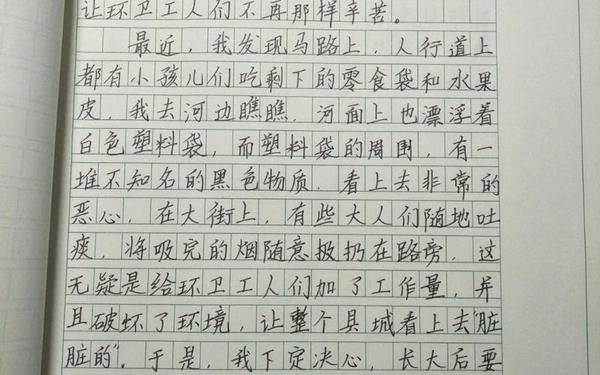 让环卫工人们不再那样辛苦。
最近，我发现马路上，人行道上
都有小孩儿们吃剩下的零食袋和水果
皮，我去河边瞧瞧，河面上也漂浮着
白色塑料袋，而塑料袋的周围，有一
堆不知名的黑色物质，看上去非常的
恶心，在大街上，有些大人们随地吐
痰，将吸完的烟随意扱扔在路旁，这
无疑是给环卫工人们加了工作量，并
且破坏了环境，让整个县城看上去"脏
脏的"。于是，我下定决心，长大后要